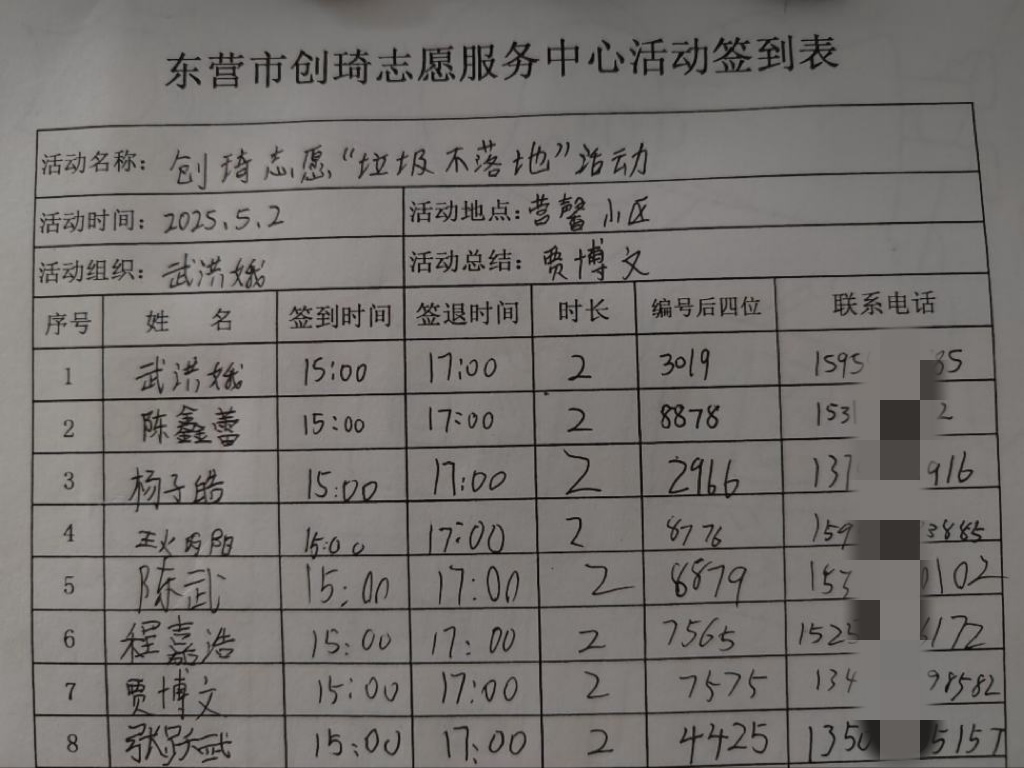 东营市创琦志愿服务中心活动签到表
活动名称：创琦志愿“垃圾不落地”活动
活动时间：2025.5.2 活动地点：营馨小区
活动组织：武洪娥 活动总结：贾博文
序号 姓 名 签到时间 签退时间 时长 编号后四位 联系电话
1 武洪娥 15:00 17:00 2 3019 1595 35
2 陈鑫蕾 15:00 17:00 2 8878 153 2
3 杨子皓 15:00 17:00 2 2966 137 916
4 阳 15:00 17:00 2 8776 159 3885
5 陈武 15:00 17:00 2 8879 153 0102
6 程嘉浩 15:00 17:00 2 7565 1525 172
7 贾博文 15:00 17:00 2 7575 134 98582
8 张跃武 15:00 17:00 2 4425 1350 5157